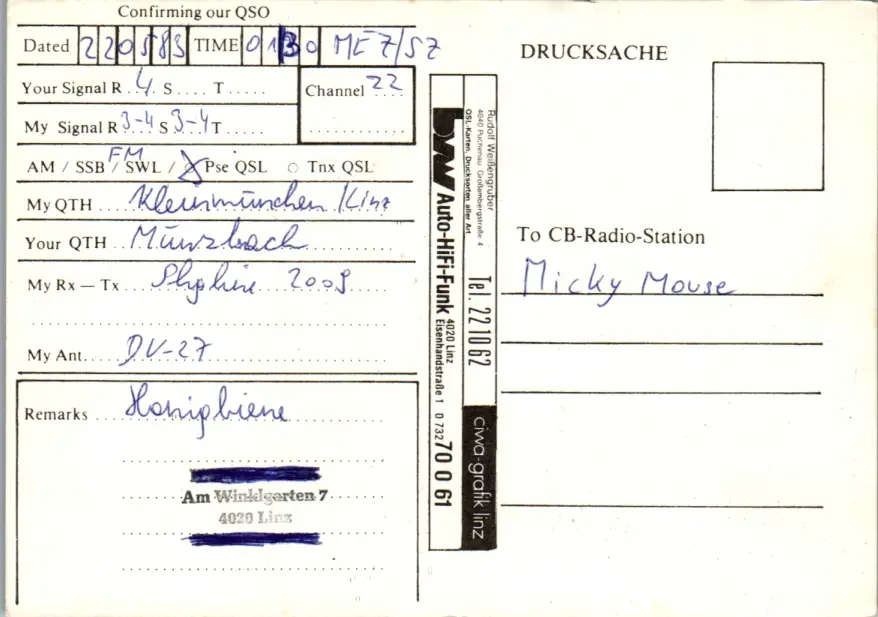 Confirming our QSO
Dated 220583 TIME 0130 MEZ/SZ
Your Signal R . 4 . S .... T .....
Channel 22
My Signal R 3-4 S 3-4 T .....
FM
AM / SSB / SWL / Pse QSL ○ Tnx QSL
My QTH .. Kleinmünchen / Linz
Your QTH .. Münzbach
My Rx — Tx ... 2009
My Ant..... DV-27
Remarks ... Honigbiene
Am Winklgarten 7
4020 Linz
Rudolf Weißengruber
4040 Puchenau, Großambergstraße 4
QSL-Karten, Drucksorten aller Art
Tel. 22 10 62
Auto-HiFi-Funk
4020 Linz
Eisenhandstraße 1 0 732 70 0 61
ciwa-grafik linz
DRUCKSACHE
To CB-Radio-Station
Micky Mouse